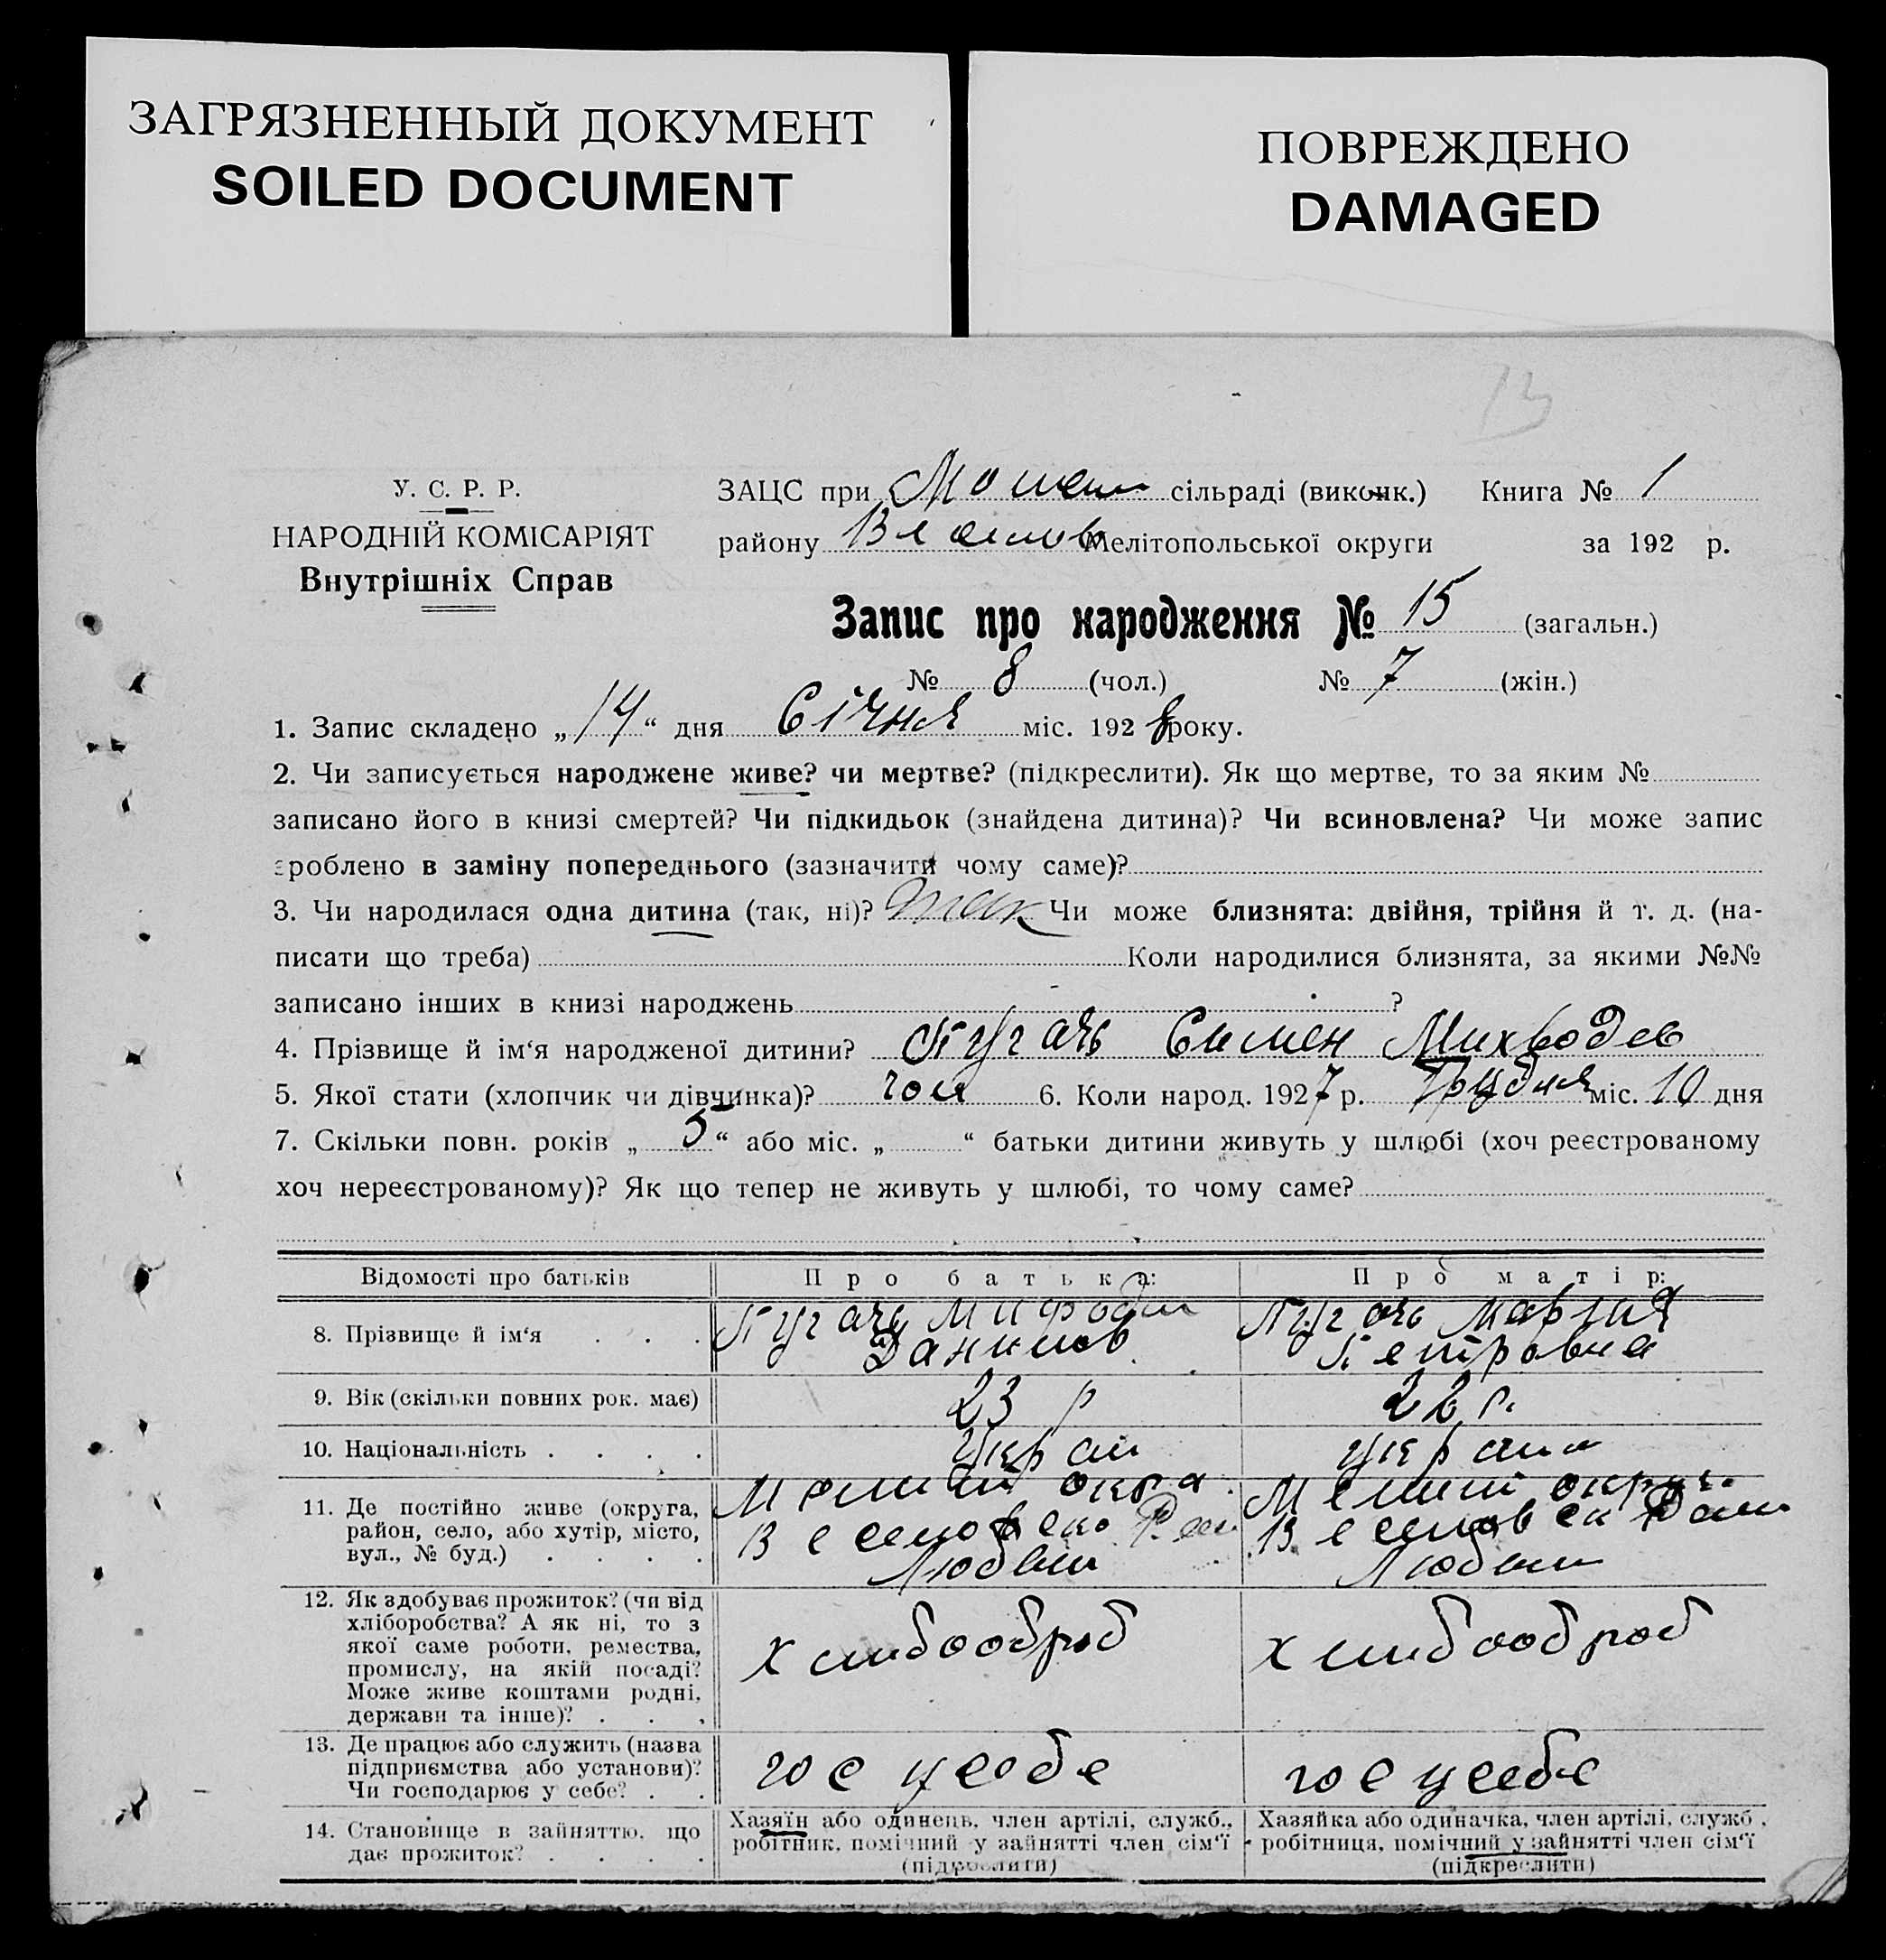 ЗАГРЯЗНЕННЫЙ ДОКУМЕНТ
SOILED DOCUMENT
ПОВРЕЖДЕНО
DAMAGED
13
У. С. Р. Р.
НАРОДНІЙ КОМІСАРІЯТ
Внутрішніх Справ
ЗАЦС при сільраді (виконк.) Книга № 1
району Мелітопольської округи за 192 р.
Запис про народження № 15 (загальн.)
№ 8 (чол.) № 7 (жін.)
1. Запис складено „14“ дня Січня міс. 1928 року.
2. Чи записується народжене живе? чи мертве? (підкреслити). Як що мертве, то за яким №
записано його в книзі смертей? Чи підкидьок (знайдена дитина)? Чи всиновлена? Чи може запис
зроблено в заміну попереднього (зазначити чому саме)?
3. Чи народилася одна дитина (так, ні)? так Чи може близнята: двійня, трійня й т. д. (на-
писати що треба) Коли народилися близнята, за якими №№
записано інших в книзі народжень ?
4. Прізвище й ім‘я народженої дитини? Пугачь Симен
5. Якої стати (хлопчик чи дівчинка)? чол 6. Коли народ. 1927 р. Грудня міс. 10 дня
7. Скільки повн. років „5“ або міс. „ “ батьки дитини живуть у шлюбі (хоч реєстрованому
хоч нереєстрованому)? Як що тепер не живуть у шлюбі, то чому саме?
Відомості про батьків
Про батька:
Про матір:
8. Прізвище й ім‘я . . .
Пугачь Мифодий
Данилов
Пугачь Мария
Петровна
9. Вік (скільки повних рок. має)
23 р
22 р.
10. Національність . . . .
Украй
Україн
11. Де постійно живе (округа,
район, село, або хутір, місто,
вул., № буд.) . . . .
Мелит окра
Веселовско Рай
Мелит округ.
Веселовск Рай
12. Як здобуває прожиток? (чи від
хліборобства? А як ні, то з
якої саме роботи, ремества,
промислу, на якій посаді?
Може живе коштами родні,
держави та інше)? . . .
хлибооброб
хлибооброб
13. Де працює або служить (назва
підприємства або установи)?
Чи господарює у себе? . .
гос у себе
гос у себе
14. Становище в зайняттю, що
дає прожиток? . . . .
Хазяїн або одинець, член артілі, служб.,
робітник, помічний у зайнятті член сім‘ї
(підкреслити)
Хазяйка або одиначка, член артілі, служб.,
робітниця, помічний у зайнятті член сім‘ї
(підкреслити)